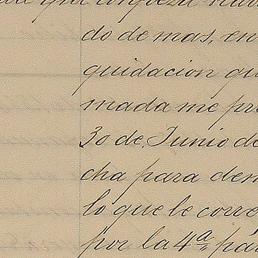 que empezu
do de mas, en
quidacion qu
mada me pre
30 de Junio de
cha para dem
lo que le corre
por la 4ª pá